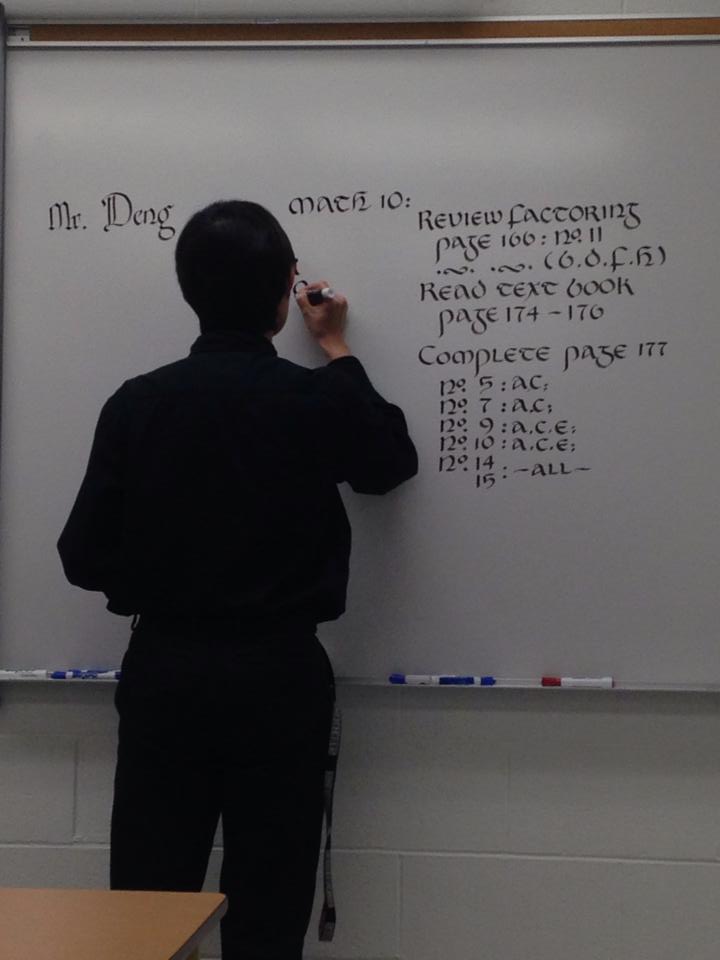 Mr. Deng
Math 10:
Review factoring
page 166 : No. 11
(b.d.f.h)
Read text book
page 174 - 176
Complete page 177
No. 5 : a.c;
No. 7 : a.c;
No. 9 : a.c.e;
No. 10 : a.c.e;
No. 14
15 : -ALL-